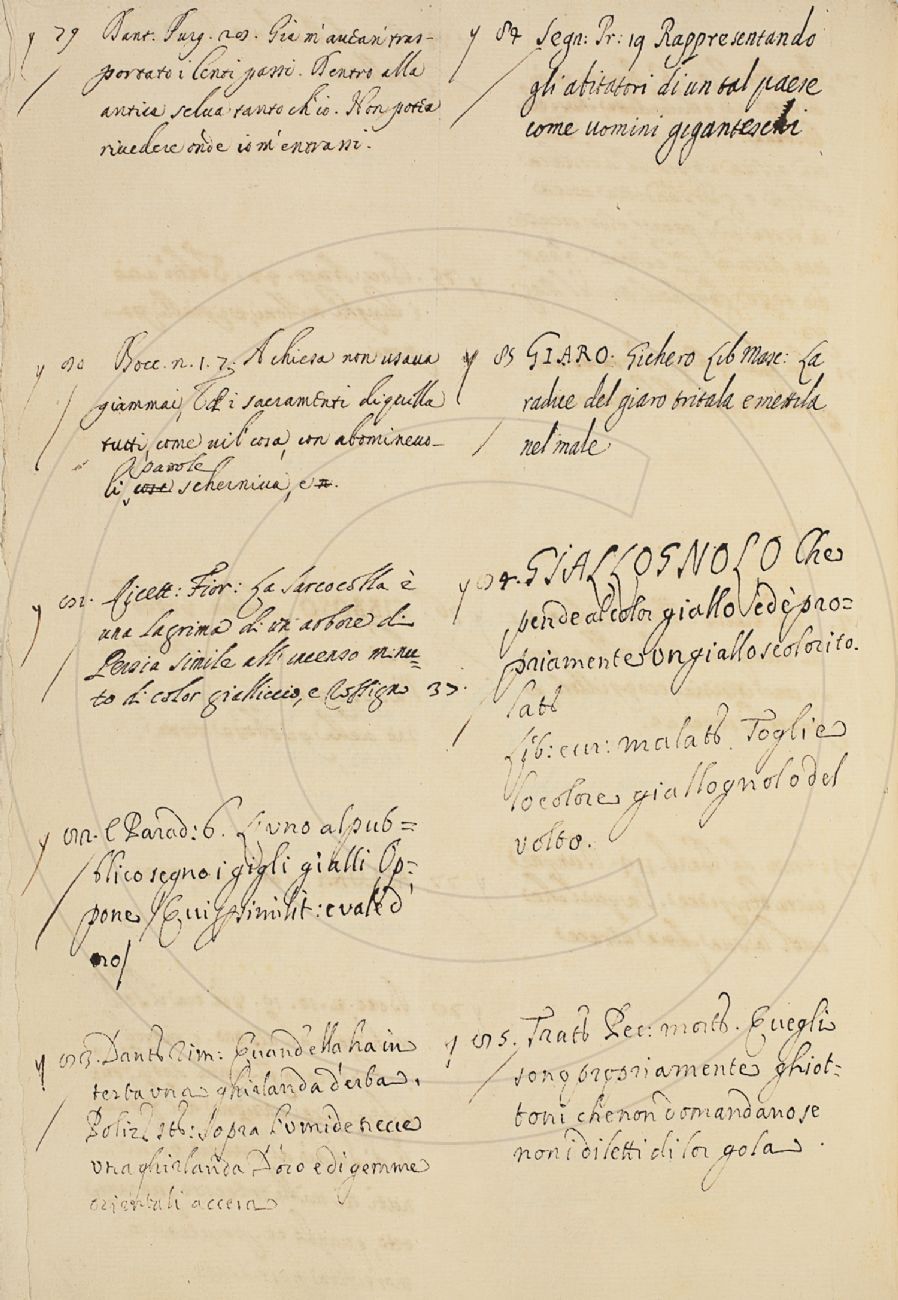 y 79 Dant. Purg. 28. Già m'auean tras-
portato i lenti passi. Dentro alla
antica selua tanto ch'io. Non potea
riuedere onde io m'entrassi.
y 80 Bocc. n. 1. 7. A chiesa non usaua
giammai, E i sacramenti di quella
tutti, come uil cosa, con abomineuo-
parole
li, scherniua, e
y Ricett: Fior: La sarcocolla è
una lagrima di un' arbore di
Persia simile all' incenso minu-
to di color gialliccio, e Rossigno 37.
y E Parad: 6. L'uno al pub=
blico segno i gigli gialli Op=
pone
y Dant Rim: Quand'ella ha in
testa una ghirlanda d'erba.
Poliz St: sopra l'umide trecce
una ghirlanda D'oro e di gemme
orientali accesa
y 84 Segn: Pr: 19 Rappresentando
gli abitatori di un tal paese
come uomini giganteschi
y 85 GIARO. Gichero Lib Masc: La
radice del giaro tritala e mettila
nel male
y GIALLOGNOLO Che
pende al color giallo ed è pro=
priamente un giallo scolorito.
Lat
Lib: cur: malat. Toglie
lo colore giallognolo del
volto.
y Tratt Pec: mort. Quegli
sono propriamente ghiot=
toni che non domandano se
non i diletti di lor gola.